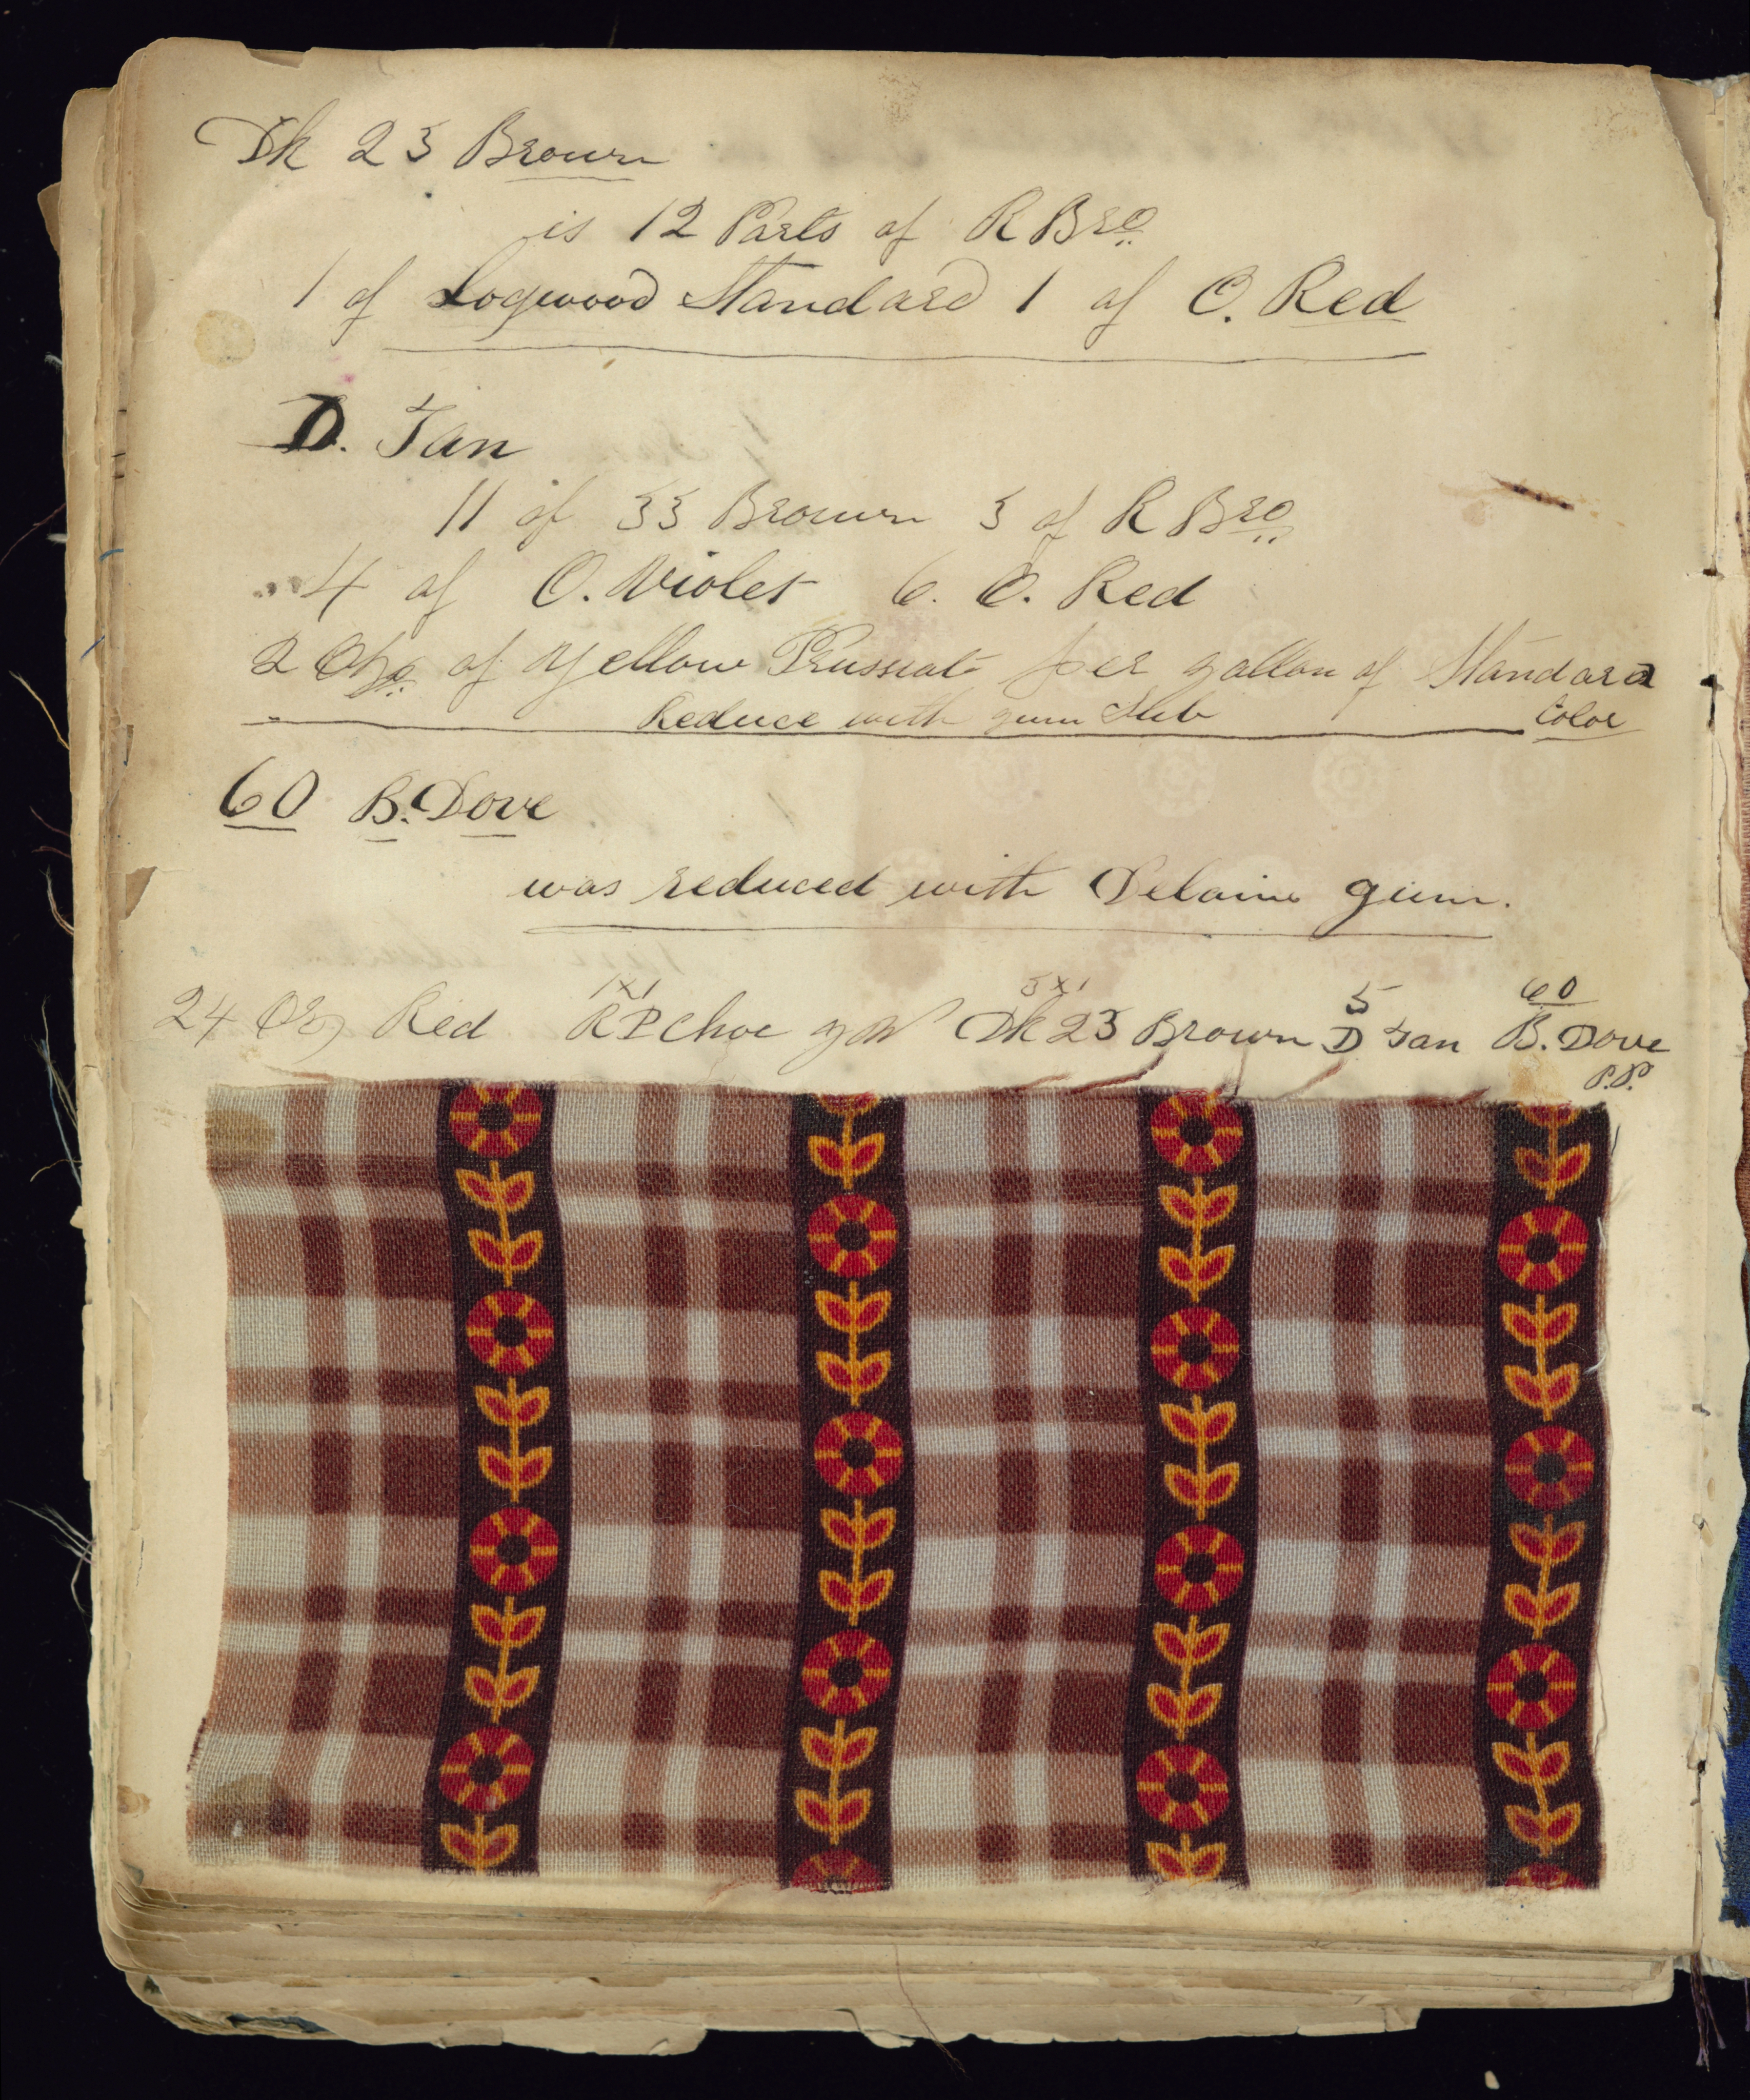 Dk 23 Brown
is 12 Parts of R Bro
1 of Logwood Standard 1 of O. Red
D. Tan
11 of 33 Brown 3 of R Bro
4 of O. Violet 6. O. Red
2 Ozs. of Yellow Prussiate per gallon of Standard
Reduce with gum Sub Color
60 B. Dove
was reduced with Delaine gum.
1x1 3x1 5 60
24 Oz Red R P Choc Dk 23 Brown D Tan B. Dove
P.P.